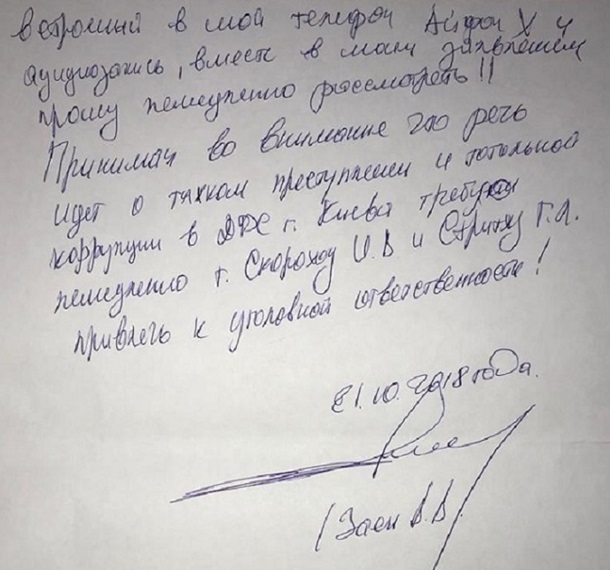 встроенный в мой телефон Айфон X и
аудиозапись, вместе в моим заявлением
прошу немедленно рассмотреть!!
Принимая во внимание что речь
идет о тяжком преступлении и тотальной
коррупции в ДФС г. Киева требую
немедленно г. Скороход И.В и Стритку Г.А.
привлечь к уголовной ответственности!
21.10.2018 года.
/Заен В.В.